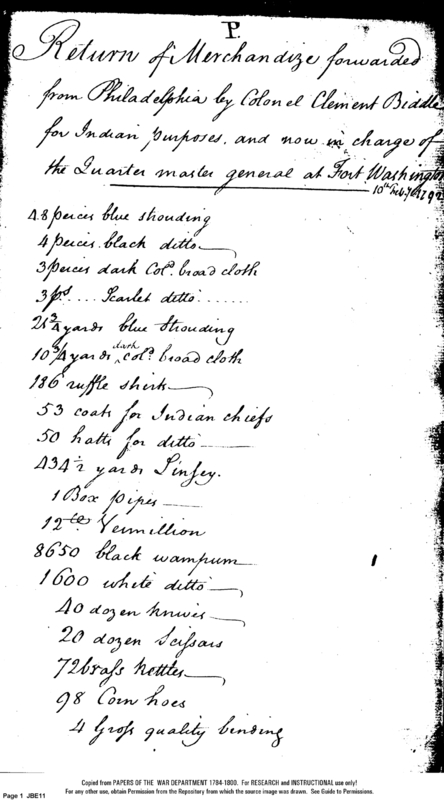 P.
Return of Merchandize forwarded
from Philadelphia by Colonel Clement Biddle
for Indian purposes. and now in charge of
the Quarter master general at Fort Washington
10th Feb.y 1792
48 peices blue strouding
4 peices black ditto
3 peices dark Col.d broad cloth
3 p.s .... Scarlet ditto .......
21 3/4 yards blue Strouding
10 3/4 yards dark Col.d broad cloth
136 ruffle shirts
53 coats for Indian chiefs
50 hatts for ditto
434 1/2 yards Linsey.
1 Box pipes
12 Vermillion
8650 black wampum
1600 white ditto
40 dozen knives
20 dozen Scissars
72 brass kettles
98 Corn hoes
4 Gross quality binding
Copied from PAPERS OF THE WAR DEPARTMENT 1784-1800. For RESEARCH and INSTRUCTIONAL use only!
Page 1 JBE11 For any other use, obtain Permission from the Repository from which the source image was drawn. See Guide to Permissions.